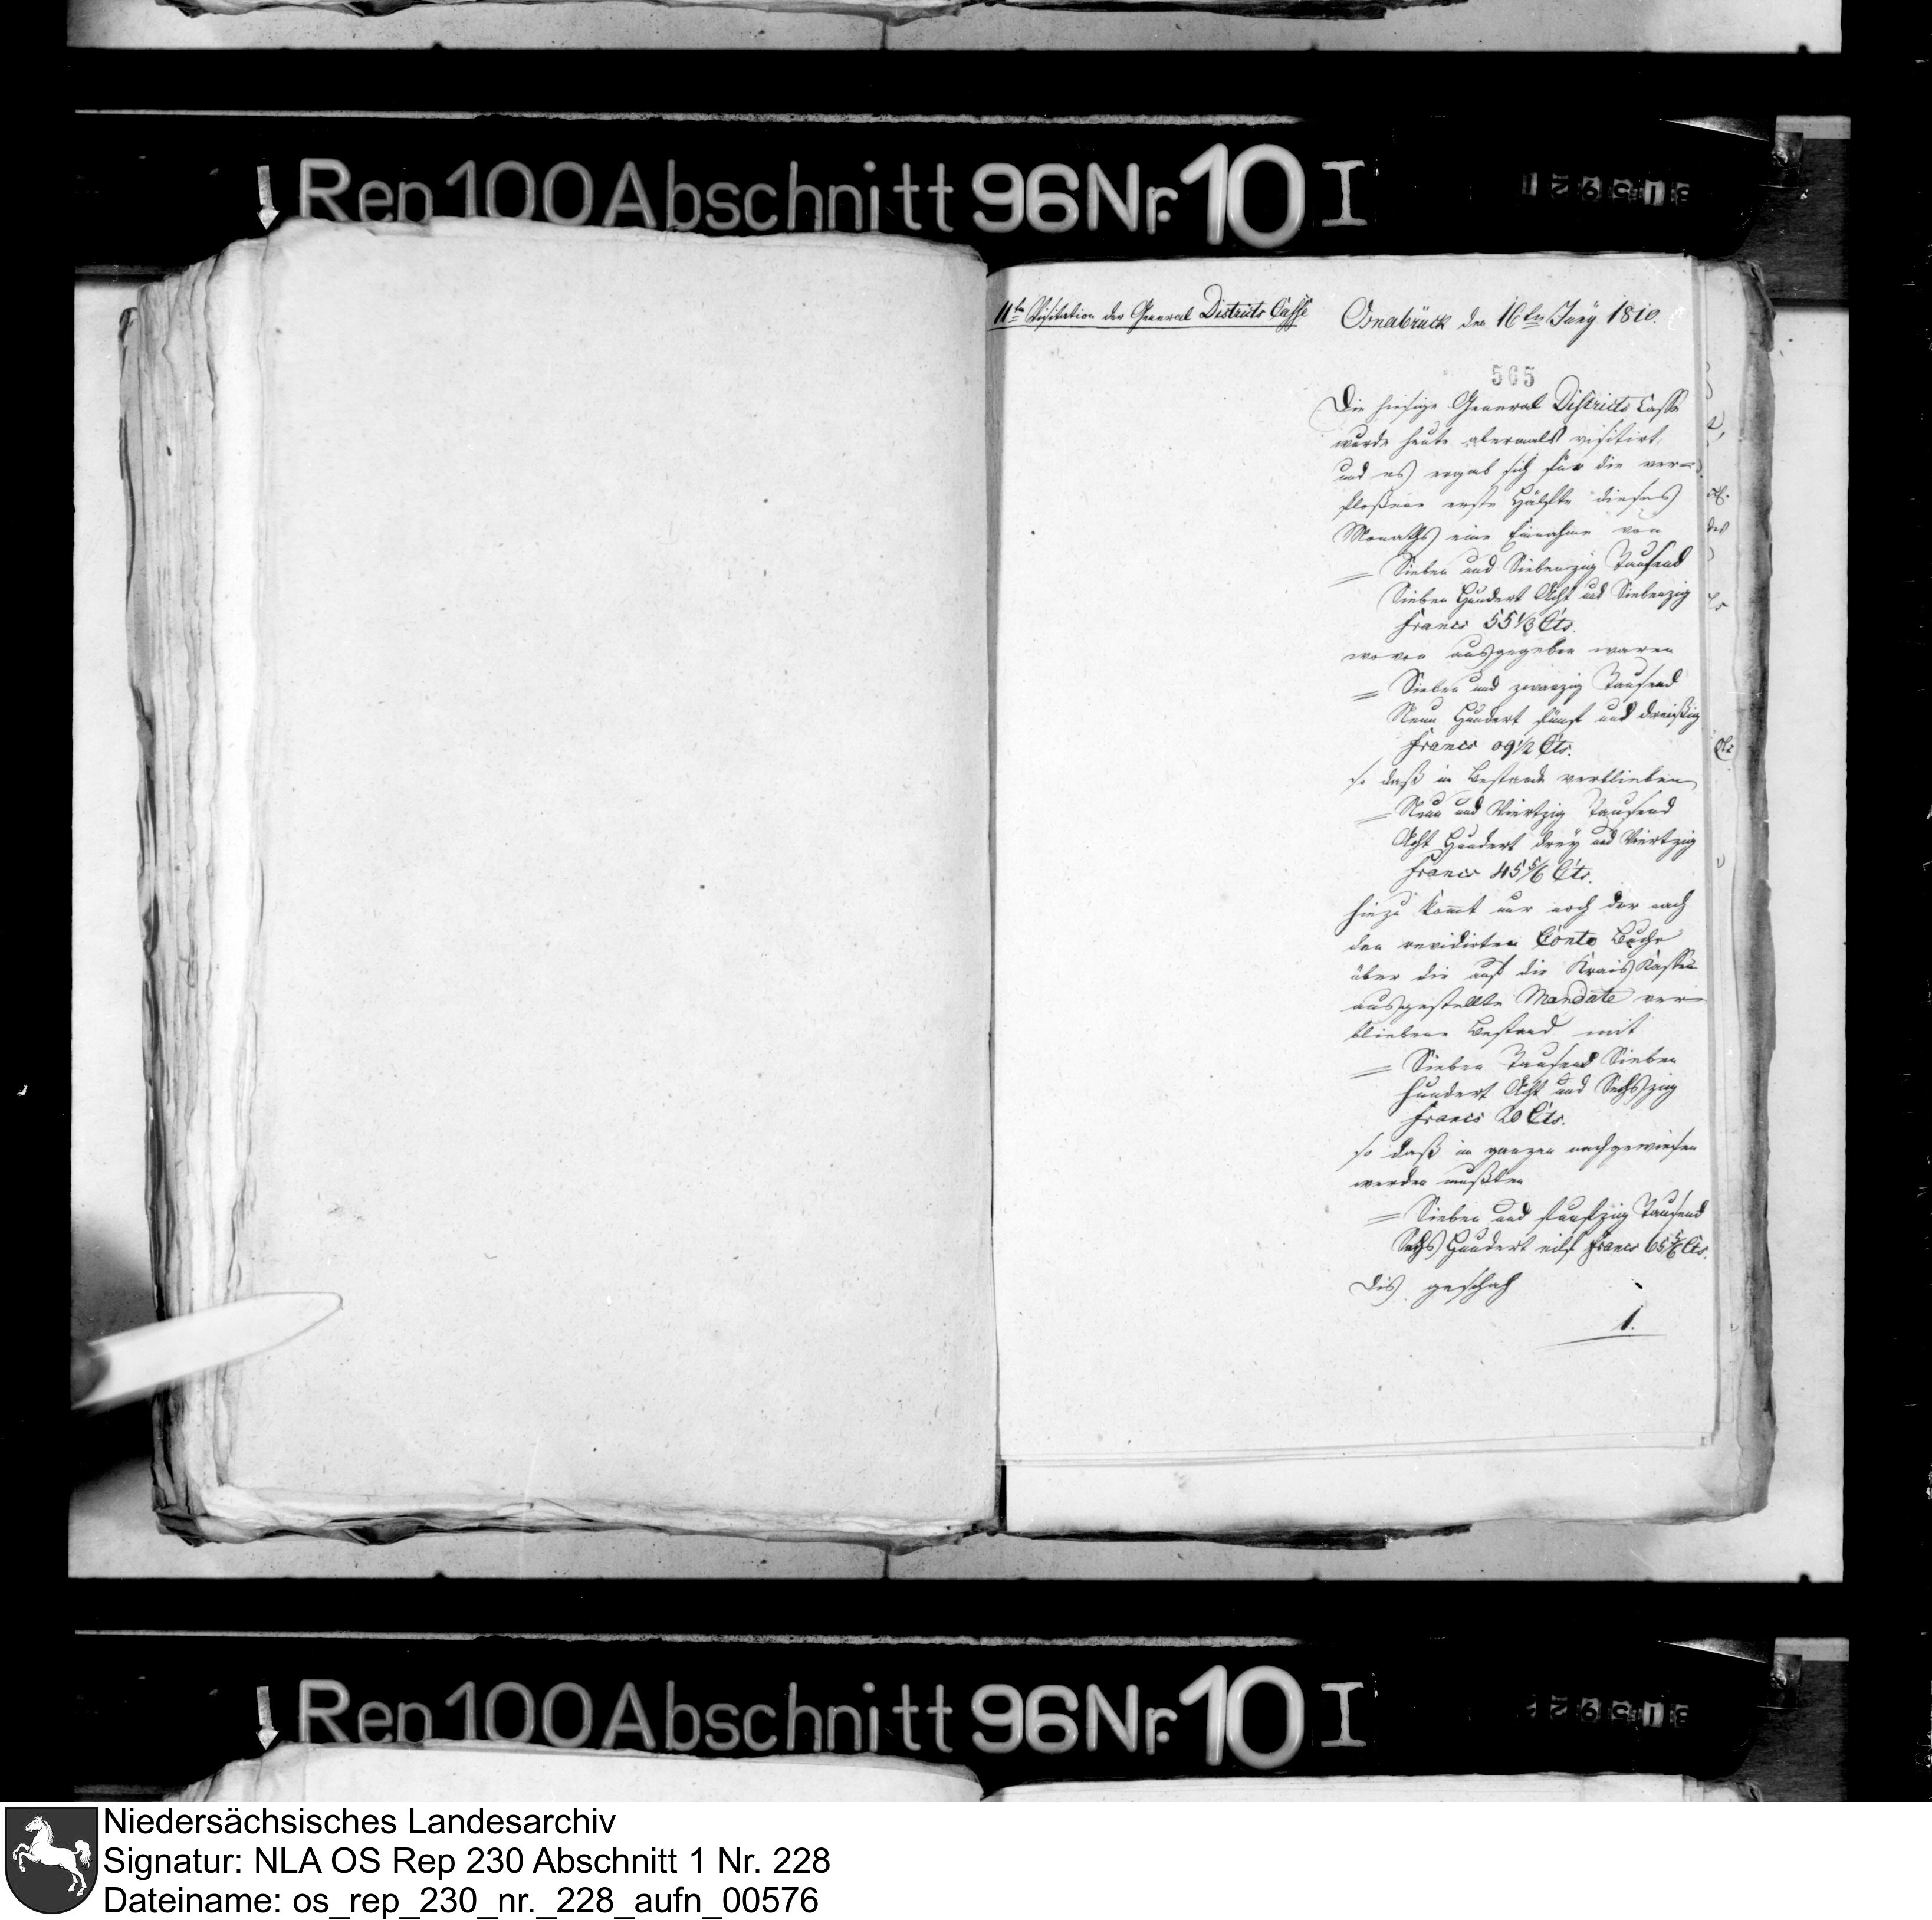 Rep 100 Abschnitt 96 Nr. 10 I
11te Visitation der General Districts Casse
Osnabrück den 16ten Juny 1810.
565
Die hiesige General Districts Casse
wurde heute abermals visitirt,
und es ergab sich für die ver=
floßene erste Hälfte dieses
Monaths eine Einnahme von
= Sieben und Siebenzig Tausend
Sieben Hundert Acht und Siebenzig
Francs 55 1/3 Cts.
wovon ausgegeben waren
= Sieben und zwanzig Tausend
Neun Hundert fünf und dreißig
Francs 09 1/2 Cts.
so daß in Bestand verblieben
= Neun und Viertzig Tausend
Acht Hundert drey und Viertzig
Francs 45 5/6 Cts.
hiezu kommt nur noch der nach
den revidirten Conto Buche
über die auf die Kreis Kassen
ausgestellte Mandate ver=
bliebene Bestand mit
= Sieben Tausend Sieben
hundert Acht und Sechszig
Francs 20 Cts.
so daß im ganzen nachgewiesen
werden mußten
= Sieben und funfzig Tausend
Sechs Hundert eilf Francs 65 5/6 Cts.
Dis geschah
1.
Rep 100 Abschnitt 96 Nr. 10 I
Niedersächsisches Landesarchiv
Signatur: NLA OS Rep 230 Abschnitt 1 Nr. 228
Dateiname: os_rep_230_nr._228_aufn_00576